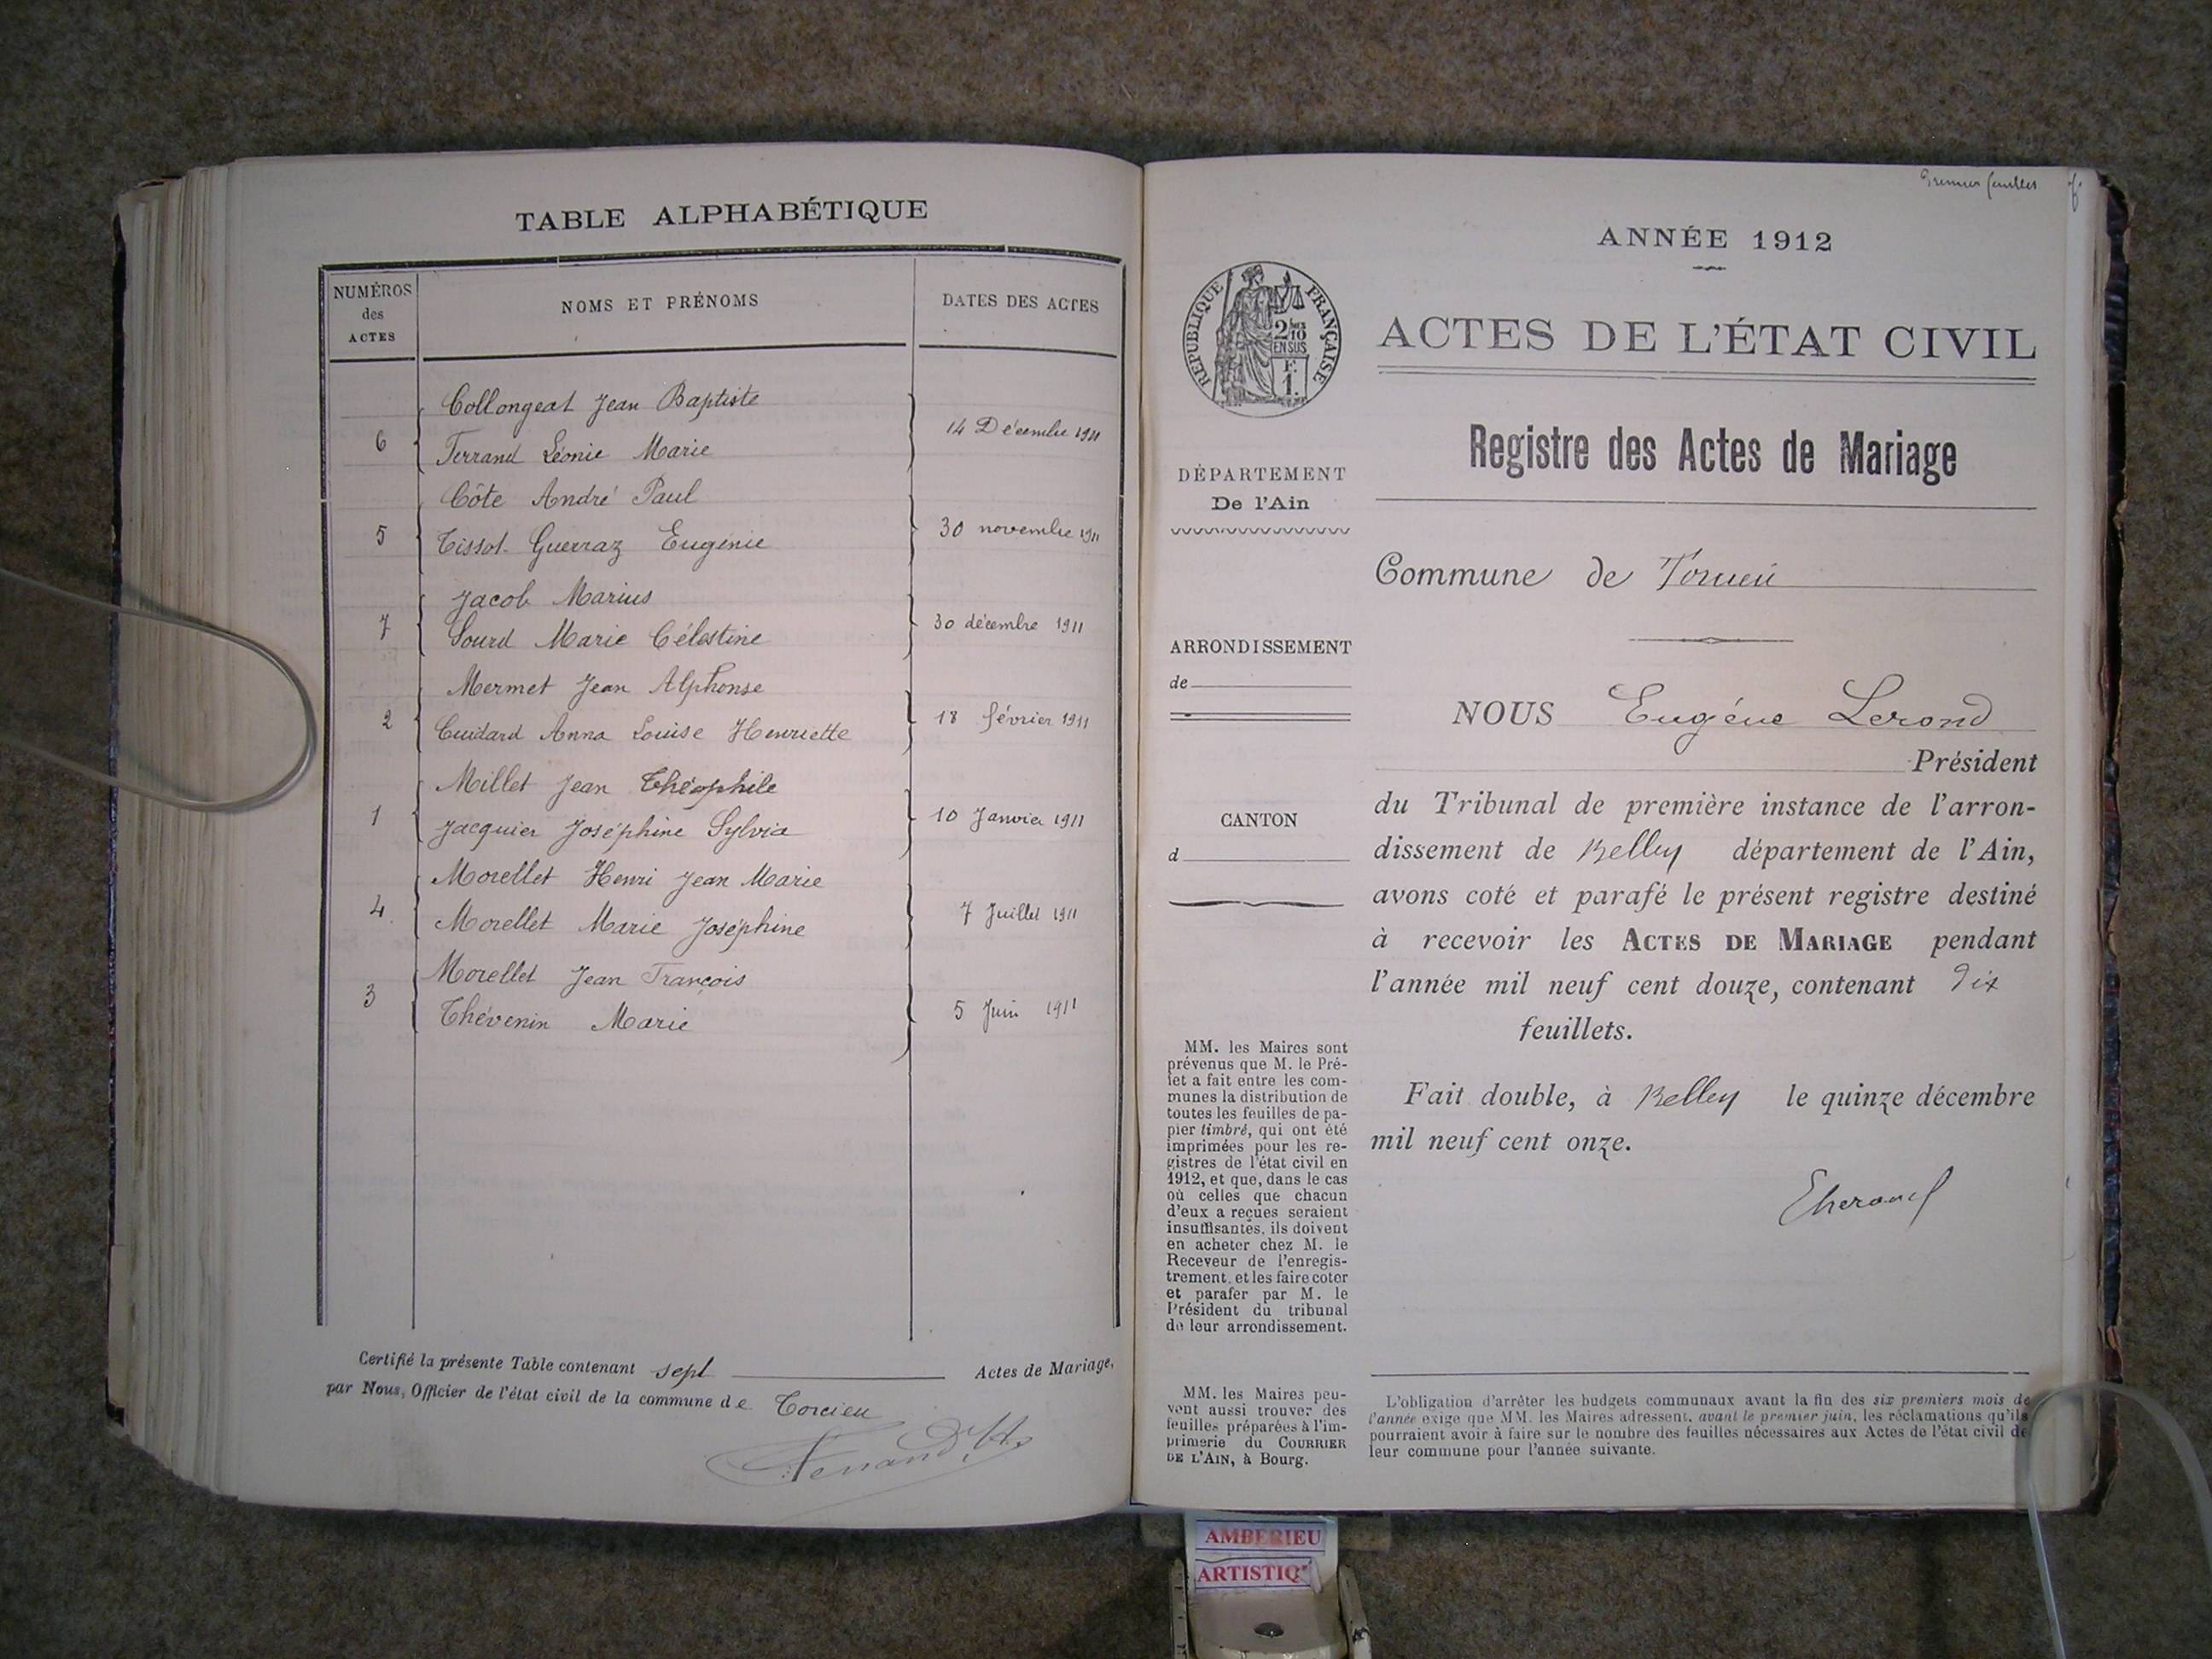 TABLE ALPHABÉTIQUE
NUMÉROS des ACTES
NOMS ET PRÉNOMS
DATES DES ACTES
Collongeat Jean Baptiste
6 Ferrand Léonie Marie 14 Décembre 1911
Côte André Paul
5 Tissot-Guerraz Eugénie 30 novembre 1911
Jacob Marius
7 Sourd Marie Célestine 30 décembre 1911
Mermet Jean Alphonse
2 Cuidard Anna Louise Henriette 18 février 1911
Millet Jean Théophile
1 Jacquier Joséphine Sylvia 10 Janvier 1911
Morellet Henri Jean Marie
4 Morellet Marie Joséphine 7 Juillet 1911
Morellet Jean François
3 Thévenin Marie 5 Juin 1911
Certifié la présente Table contenant sept Actes de Mariage,
par Nous, Officier de l'état civil de la commune de Torcieu
Premier feuillet
ANNÉE 1912
RÉPUBLIQUE FRANÇAISE
2/10
EN SUS
F.
1.
ACTES DE L'ÉTAT CIVIL
Registre des Actes de Mariage
DÉPARTEMENT
De l'Ain
Commune de Torcieu
ARRONDISSEMENT
de
CANTON
d
NOUS Eugène Lerond
Président
du Tribunal de première instance de l'arron-
dissement de Belley département de l'Ain,
avons coté et parafé le présent registre destiné
à recevoir les ACTES DE MARIAGE pendant
l'année mil neuf cent douze, contenant dix
feuillets.
Fait double, à Belley le quinze décembre
mil neuf cent onze.
MM. les Maires sont
prévenus que M. le Pré-
fet a fait entre les com-
munes la distribution de
toutes les feuilles de pa-
pier timbré, qui ont été
imprimées pour les re-
gistres de l'état civil en
1912, et que, dans le cas
où celles que chacun
d'eux a reçues seraient
insuffisantes, ils doivent
en acheter chez M. le
Receveur de l'enregis-
trement, et les faire coter
et parafer par M. le
Président du tribunal
de leur arrondissement.
MM. les Maires peu-
vent aussi trouver des
feuilles préparées à l'im-
primerie du COURRIER
DE L'AIN, à Bourg.
L'obligation d'arrêter les budgets communaux avant la fin des six premiers mois de
l'année exige que MM. les Maires adressent, avant le premier juin, les réclamations qu'ils
pourraient avoir à faire sur le nombre des feuilles nécessaires aux Actes de l'état civil de
leur commune pour l'année suivante.
AMBERIEU
ARTISTIQ